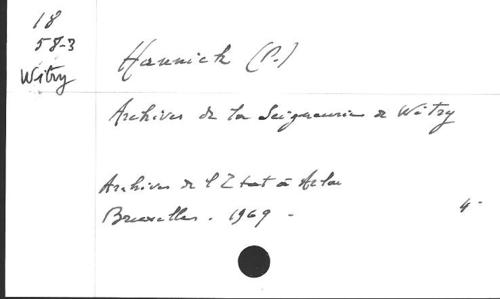 18
58-3
Witry
Hannick (P.)
Archives de la Seigneurie de Witry
Archives de l'Etat à Arlon
Bruxelles. 1969 -
4-